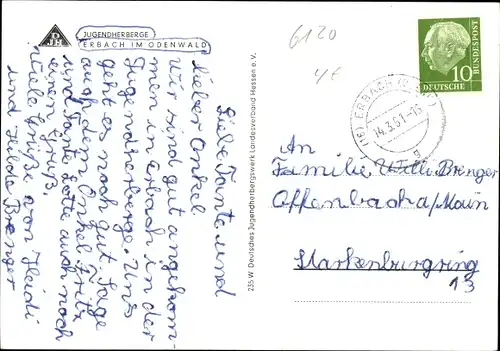 DJH
JUGENDHERBERGE
ERBACH IM ODENWALD
Liebe Tante und
lieber Onkel.
Wir sind gut angekom-
men in Erbach in der
Jugendherberge. Uns
geht es noch gut. Sage
auch dem Onkel Fritz
und Tante Lotte auch noch
einen Gruß.
Viele Grüße von Heidi
und Hilde Brenger
235 W Deutsches Jugendherbergswerk Landesverband Hessen e.V.
6120
4€
10
DEUTSCHE
BUNDESPOST
(16) ERBACH
14.3.61-15
An
Familie Willi Brenger
Offenbach a/Main
Starkenburgring
13